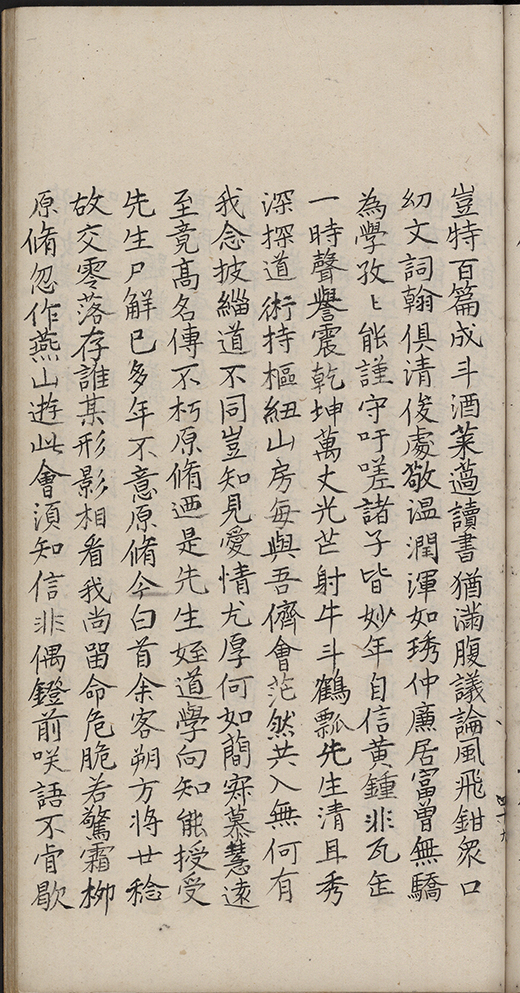 豈特百篇成斗酒萊薖讀書猶滿腹議論風飛鉗衆口
幻文詞翰俱清俊處敬温潤渾如琇仲廉居富曾無驕
為學孜〻能謹守吁嗟諸子皆妙年自信黄鍾非瓦缶
一時聲譽震乾坤萬丈光芒射牛斗鶴瓢先生清且秀
深探道術持樞紐山房每與吾儕會茫然共入無何有
我念披緇道不同豈知見愛情尤厚何如蕳寂慕慧遠
至竟高名傳不朽原脩迺是先生姪道學向知能授受
先生尸解已多年不意原脩今白首余客朔方將廿稔
故交零落存誰某形影相看我尚留命危脆若驚霜柳
原脩忽作燕山遊此會須知信非偶鐙前咲語不肯歇